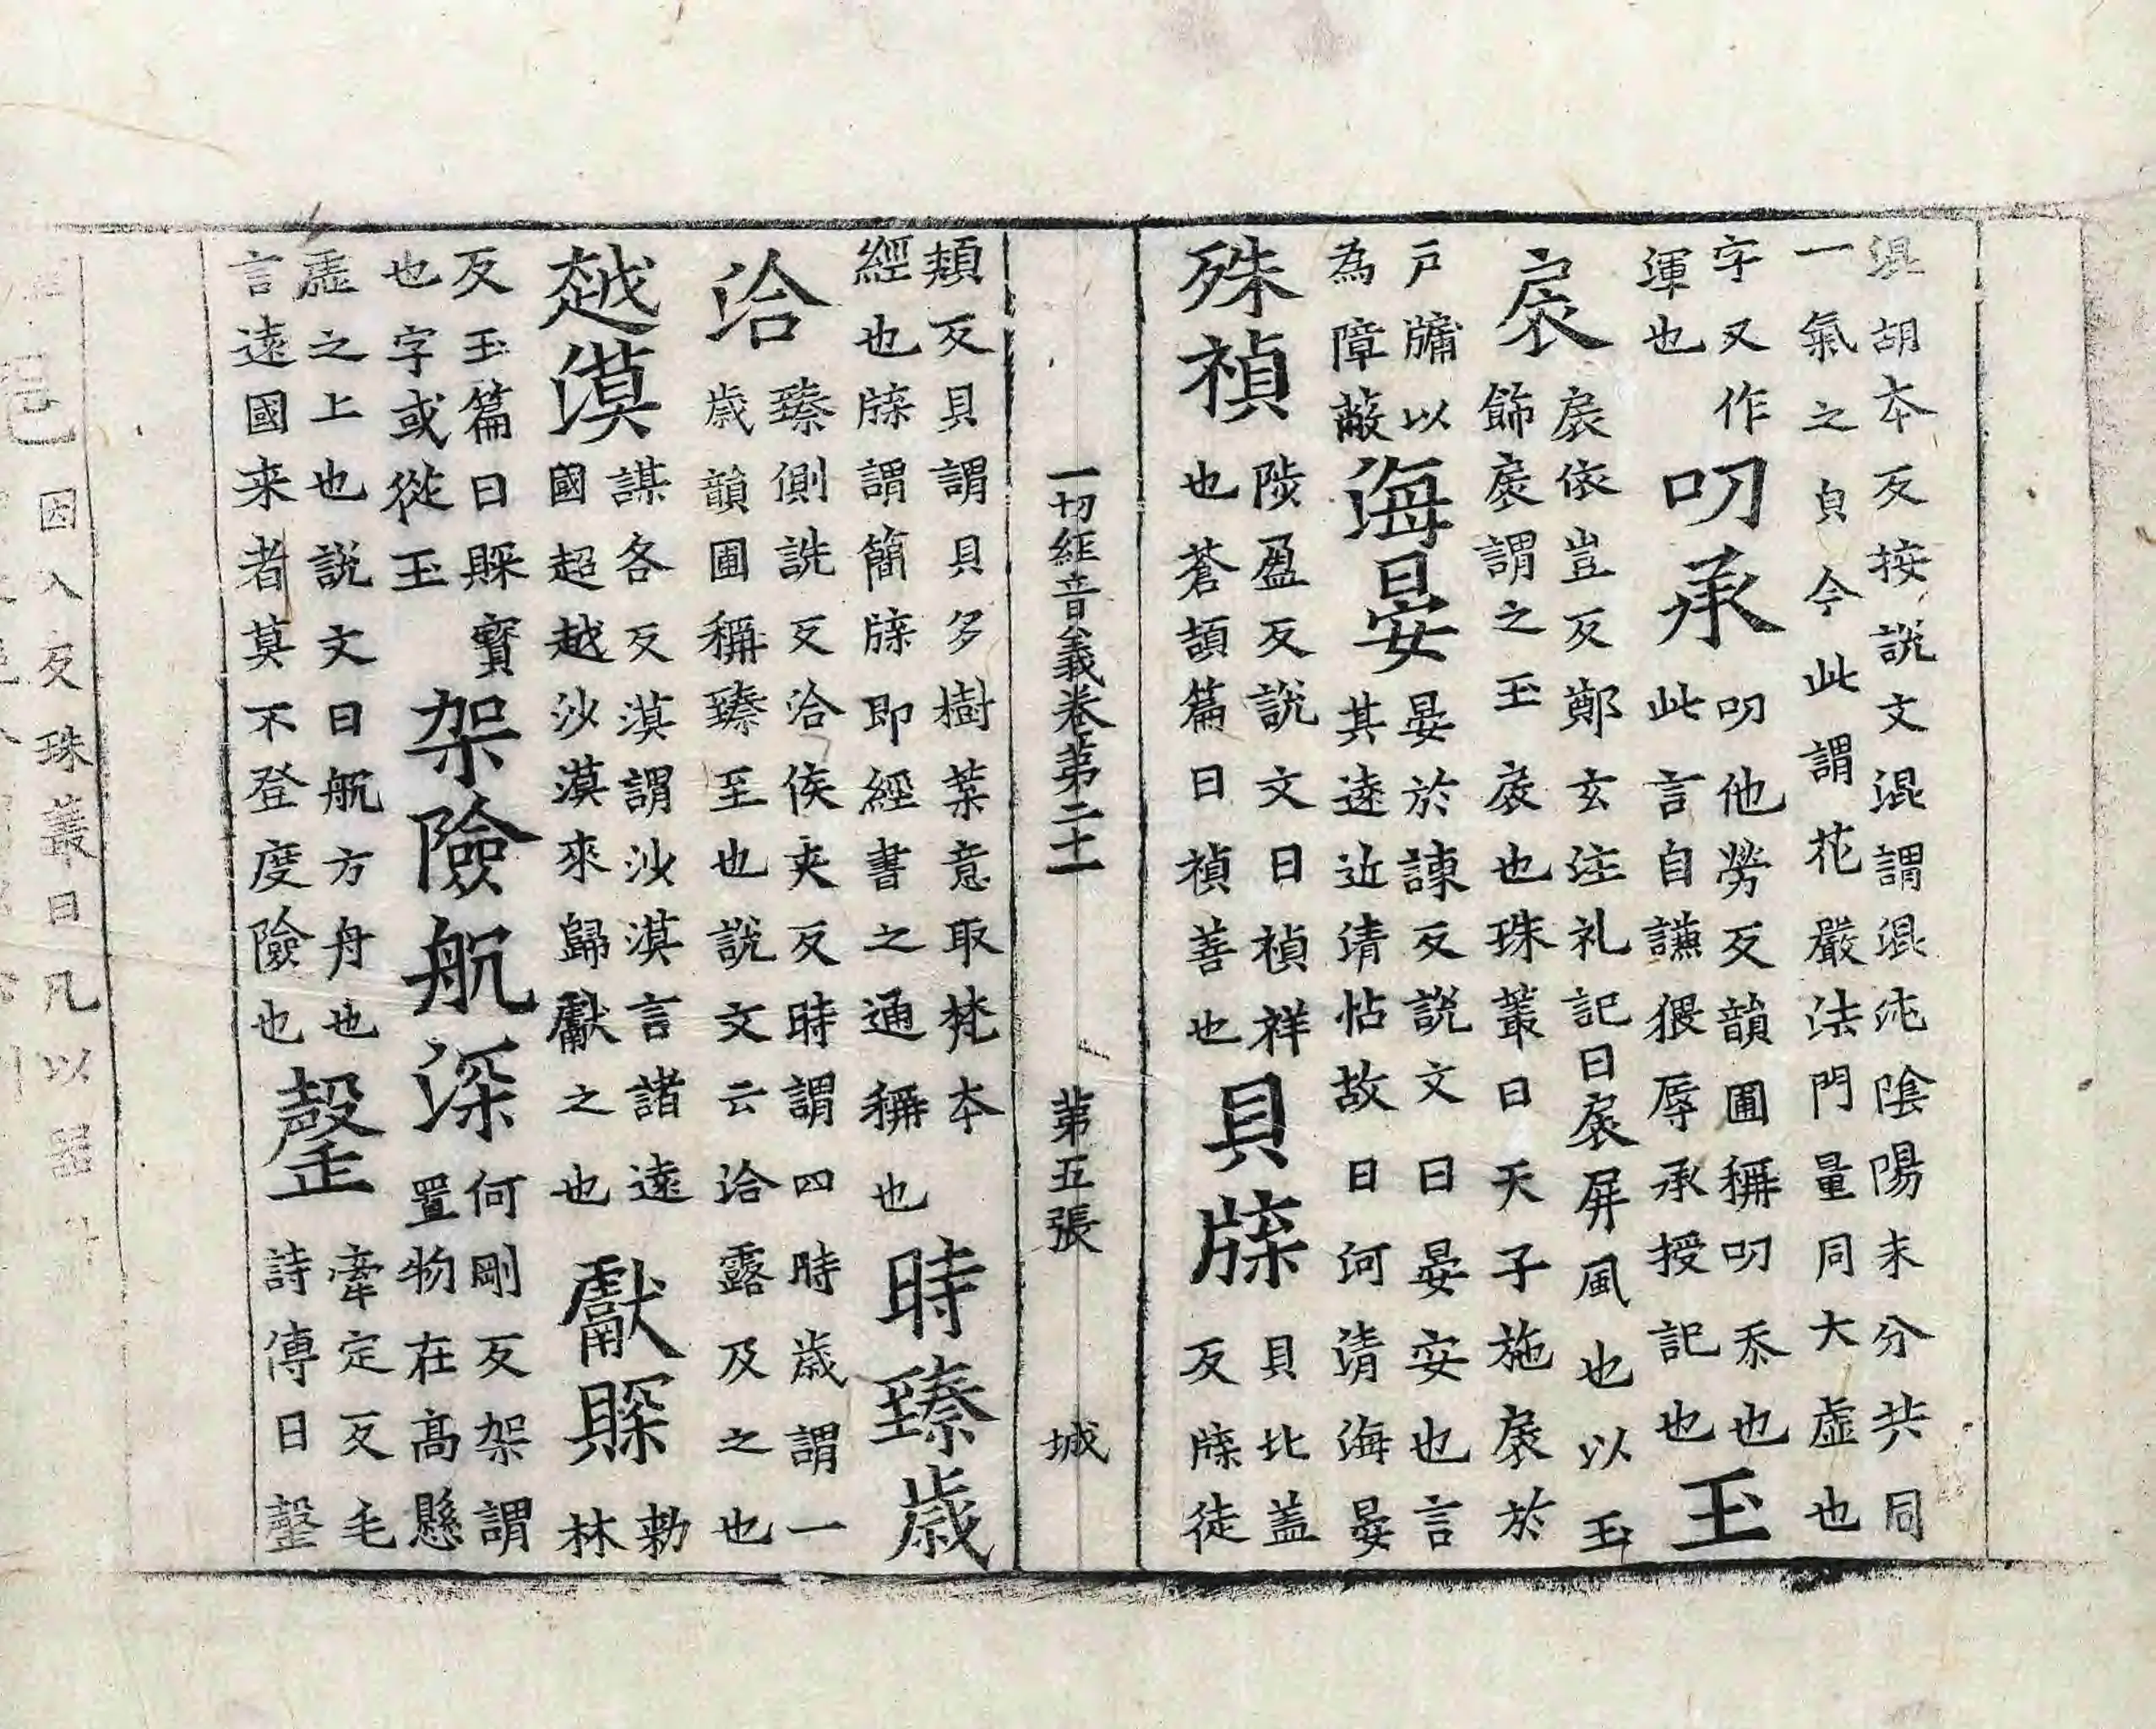 混胡本反按說文混謂混沌陰陽未分共同
一氣之皃今此謂花嚴法門量同大虛也
字又作
渾也
叨承
叨他勞反韻圃稱叨忝也
此言自謙猥辱承授記也
玉
扆
扆依豈反鄭玄注礼記曰扆屏風也以玉
飾扆謂之玉扆也珠叢曰天子施扆於
戶牖以
為障蔽
海晏
晏於諫反說文曰晏安也言
其遠近清怗故曰河清海晏
殊禎
陟盈反說文曰禎祥
也蒼頡篇曰禎善也
貝牒
貝北盖
反牒徒
一切經音義卷第二十一 第五張 城
頬反貝謂貝多樹葉意取梵本
經也牒謂簡牒即經書之通稱也
時臻歲
洽
臻側詵反洽侯夾反時謂四時歲謂一
歲韻圃稱臻至也說文云洽霑及之也
越漠
謨各反漠謂沙漠言諸遠
國超越沙漠來歸獻之也
獻賝
勅
林
反玉篇曰賝寶
也字或從玉
架險航深
何剛反架謂
置物在高懸
虛之上也說文曰航方舟也
言遠國来者莫不登度險也
罄
牽定反毛
詩傳曰罄
因入反珠叢曰凡以器